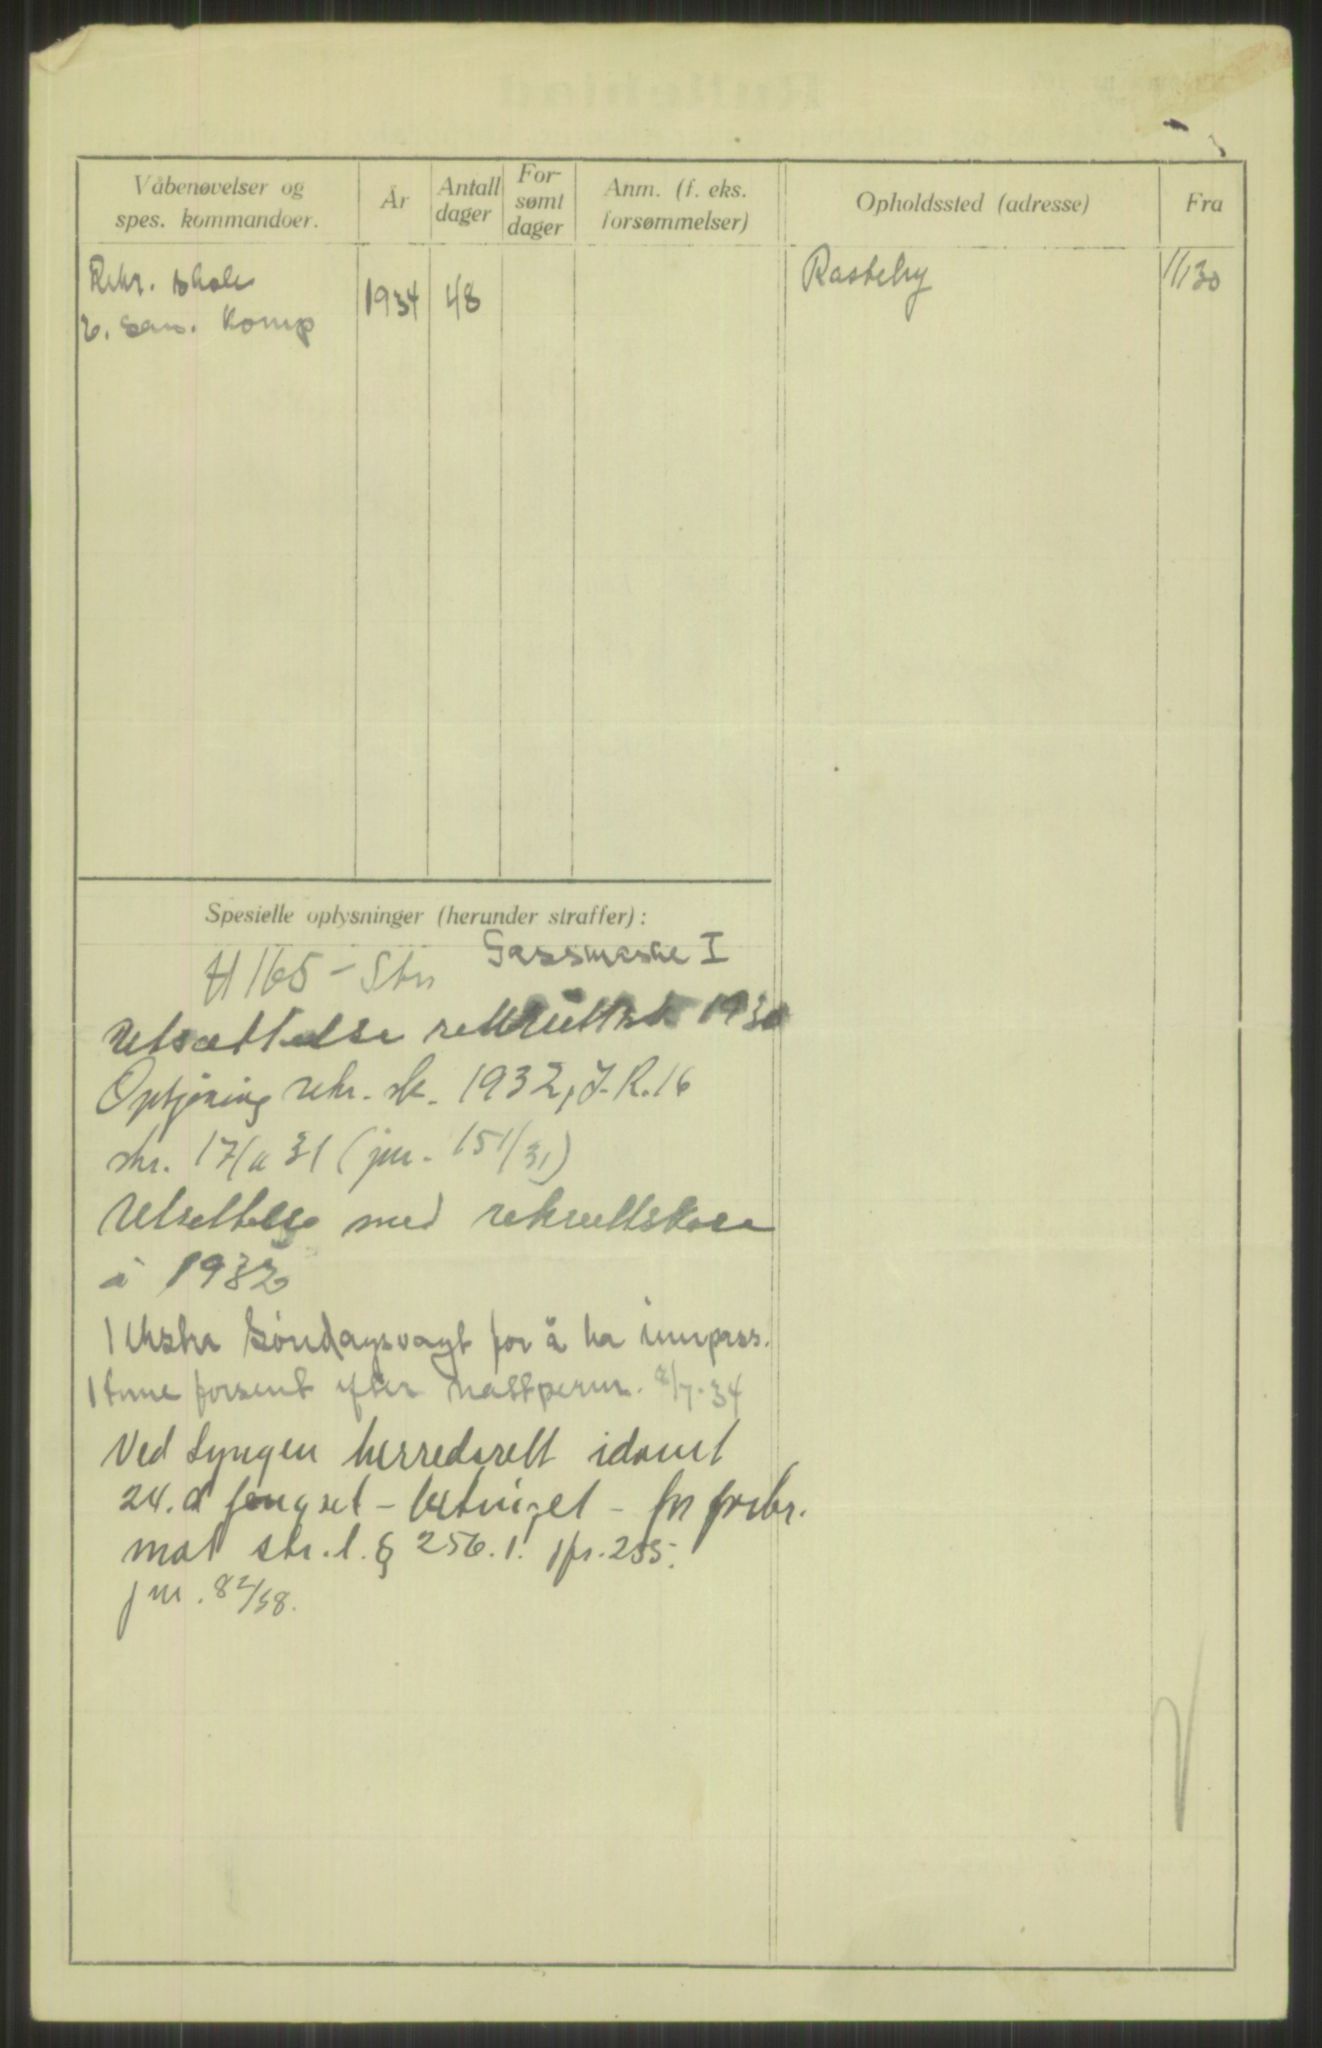 Våbenøvelser og
spes. kommandoer.
År
Antall
dager
For-
sømt
dager
Anm. (f. eks.
forsømmelser)
Opholdssted (adresse)
Fra
Rekr. skole
6. San. Komp
1934
48
Rasteby
1/1 30
Spesielle oplysninger (herunder straffer):
H 165 - Stn
Gassmaske I
Utsættelse rekruttsk. 1930
Optjening rekr. sk. 1932, J.R. 16
skr. 17/11 31 (jnr. 151/31)
Utsettelse med rekruttskole
i 1932
1 ekstra søndagsvagt for å ha
1 time forsent efter nattperm. 8/7-34
Ved Lyngen herredsrett idømt
24. d fengsel - betinget - for forbr.
mot str.l. § 256.1. jfr. 255.
jnr. 82/38.